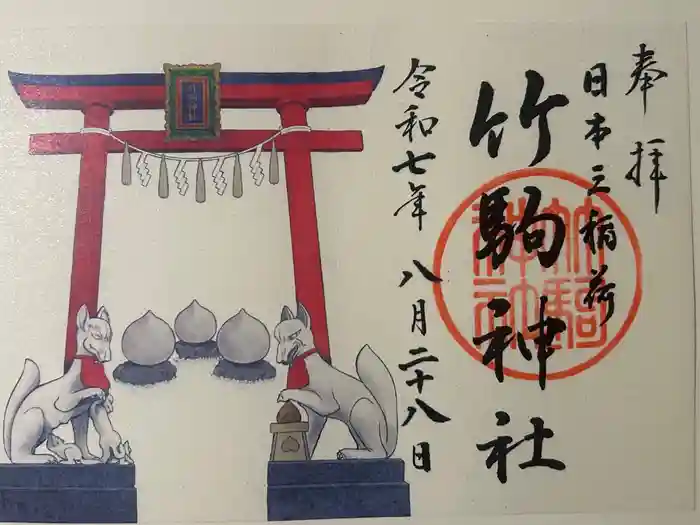 奉拝
日本三稲荷
竹駒神社
竹駒神社
令和七年 八月二十八日